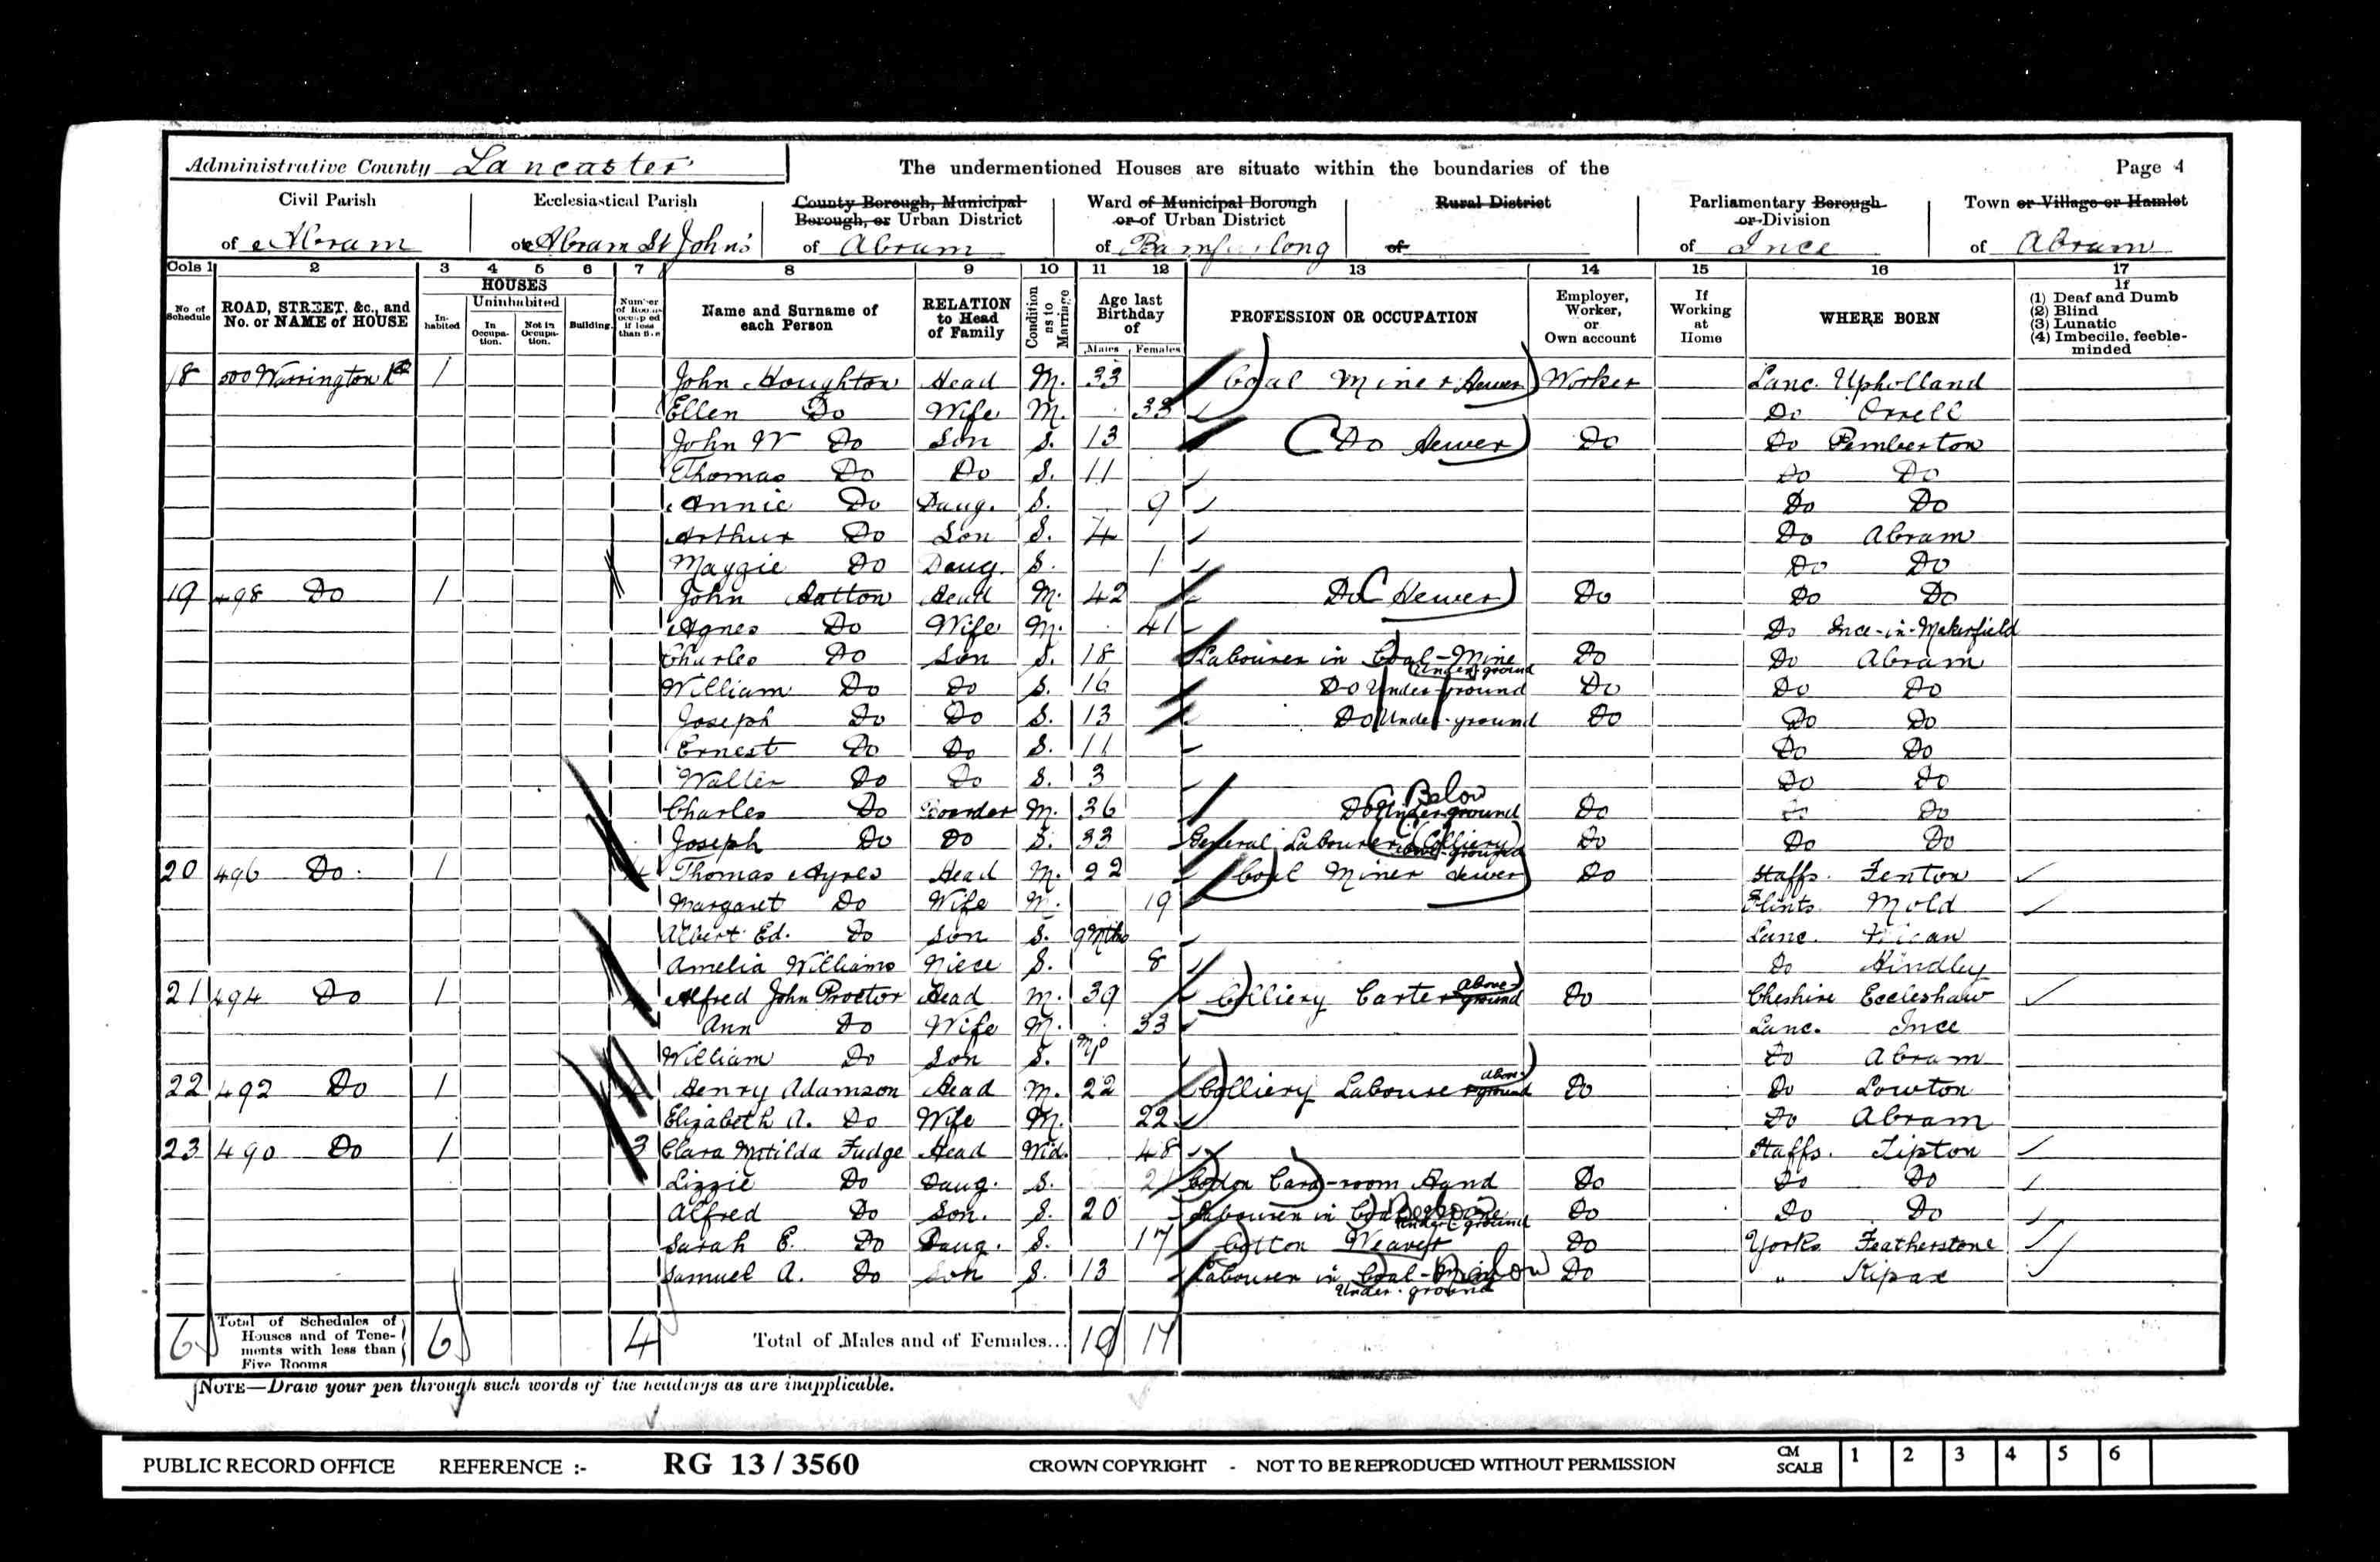 Administrative County Lancaster
The undermentioned Houses are situate within the boundaries of the
Page 4
Civil Parish of Abram
Ecclesiastical Parish of Abram St John's
County Borough, Municipal Borough, or Urban District of Abram
Ward of Municipal Borough or of Urban District of Bamfurlong
Rural District of
Parliamentary Borough or Division of Ince
Town or Village or Hamlet of Abram
Cols 1 2 3 4 5 6 7 8 9 10 11 12 13 14 15 16 17
No. of Schedule
ROAD, STREET, &c., and No. or NAME of HOUSE
HOUSES
In-habited
Uninhabited
In Occupa-tion.
Not in Occupa-tion.
Building.
Number of Rooms occupied if less than five
Name and Surname of each Person
RELATION to Head of Family
Condition as to Marriage
Age last Birthday of
Males Females
PROFESSION OR OCCUPATION
Employer, Worker, or Own account
If Working at Home
WHERE BORN
If (1) Deaf and Dumb (2) Blind (3) Lunatic (4) Imbecile, feeble-minded
18 500 Warrington Rd 1 John Houghton Head M. 33 Coal Miner Hewer Worker Lanc. Upholland
Ellen Do Wife M. 33 Do Orrell
John W Do Son S. 13 (Do Hewer) Do Do Pemberton
Thomas Do Do S. 11 Do Do
Annie Do Daug. S. 9 Do Do
Arthur Do Son S. 4 Do Abram
Maggie Do Daug. S. 1 Do Do
19 498 Do 1 John Hatton Head M. 42 Do (Hewer) Do Do Do
Agnes Do Wife M. 41 Do Ince-in-Makerfield
Charles Do Son S. 18 Labourer in Coal-Mine Under-ground Do Do Abram
William Do Do S. 16 Do Under-ground Do Do Do
Joseph Do Do S. 13 Do Under-ground Do Do Do
Ernest Do Do S. 11 Do Do
Walter Do Do S. 3 Do Do
Charles Do Boarder M. 36 Do Under-ground Below Do Do Do
Joseph Do Do S. 33 General Labourer (Colliery) Do Do Do
20 496 Do. 1 4 Thomas Ayres Head M. 22 Coal Miner Hewer Do Staffs. Fenton
Margaret Do Wife M. 19 Flints. Mold
Albert Ed. Do Son S. 9 Mths Lanc. Wigan
Amelia Williams Niece S. 8 Do Hindley
21 494 Do 1 4 Alfred John Proctor Head M. 39 Colliery Carter Above ground Do Cheshire Eccleshaw
Ann Do Wife M. 33 Lanc. Ince
William Do Son S. Do Abram
22 492 Do 1 4 Henry Adamson Head M. 22 Colliery Labourer above ground Do Do Lowton
Elizabeth A. Do Wife M. 22 Do Abram
23 490 Do 1 3 Clara Matilda Fudge Head Wid. 48 Staffs. Tipton
Lizzie Do Daug. S. 21 Cotton Card-room Hand Do Do Do
Alfred Do Son. S. 20 Labourer in Coal Mine Under-ground Below Do Do Do
Sarah E. Do Daug. S. 17 Cotton Weaver Do Yorks Featherstone
Samuel A. Do Son S. 13 Labourer in Coal-Mine Under-ground Below Do " Kipax
6 Total of Schedules of Houses and of Tene-ments with less than Five Rooms 6 4 Total of Males and of Females... 19 17
NOTE—Draw your pen through such words of the headings as are inapplicable.
PUBLIC RECORD OFFICE REFERENCE :- RG 13 / 3560 CROWN COPYRIGHT - NOT TO BE REPRODUCED WITHOUT PERMISSION CM SCALE 1 2 3 4 5 6